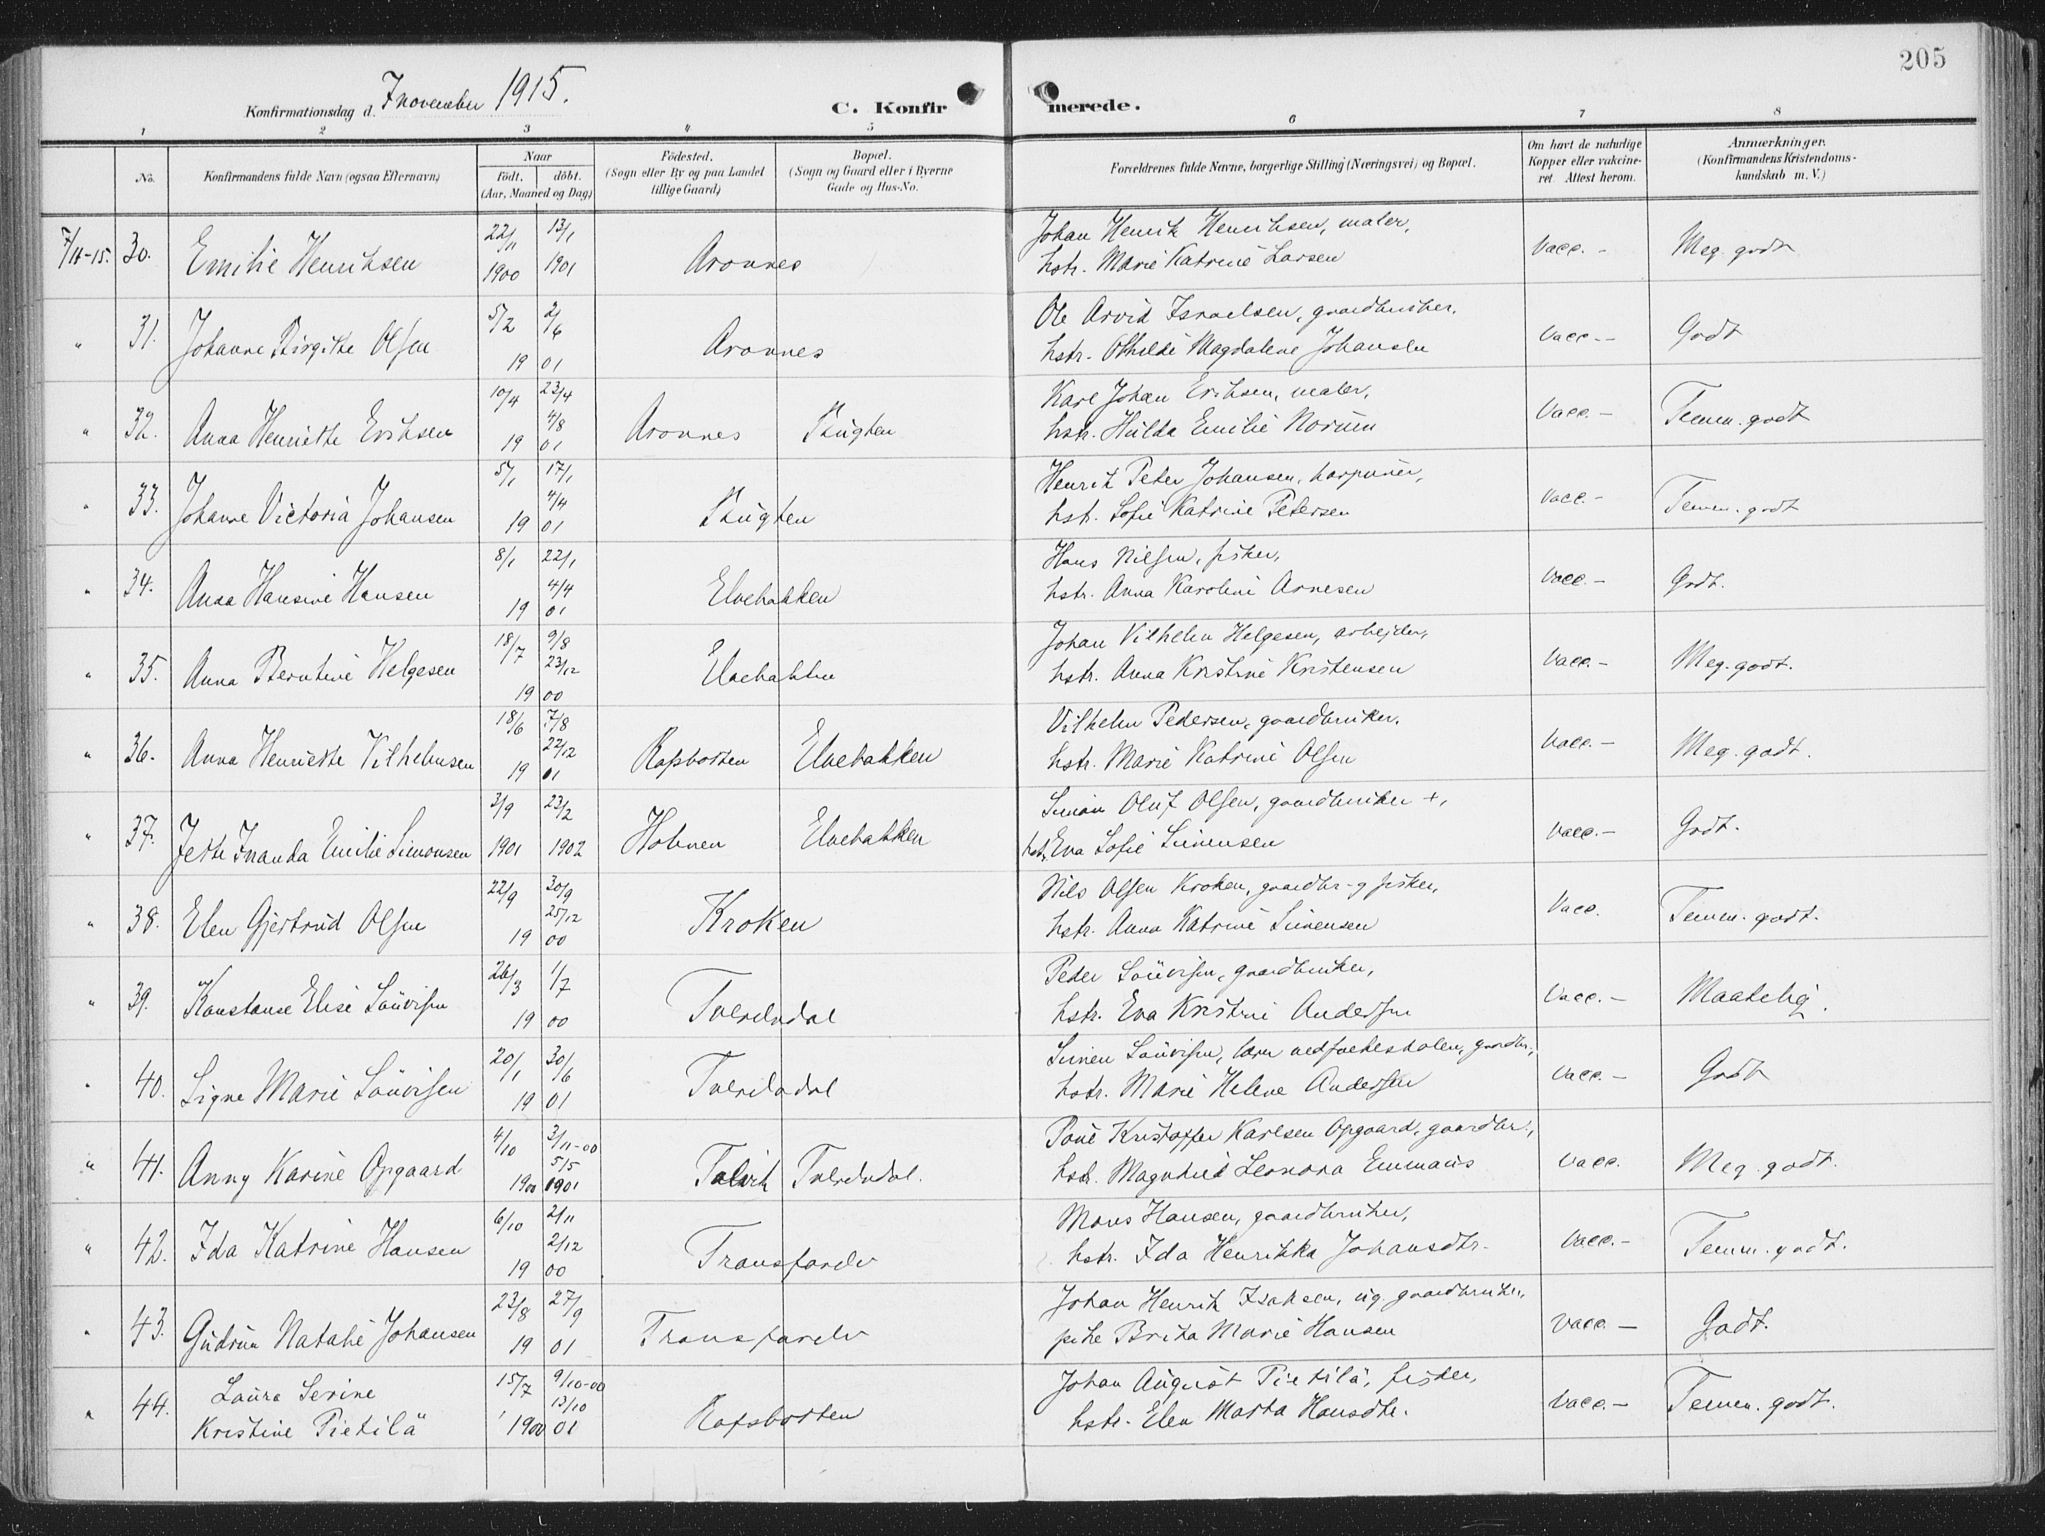 205
Konfirmationsdag d. 7 november 1915.
C. Konfirmerede.
1 2 3 4 5 6 7 8
No.
Konfirmandens fulde Navn (ogsaa Efternavn)
Naar
Födt. döbt.
(Aar, Maaned og Dag)
Födested.
(Sogn eller By og paa Landet
tillige Gaard)
Bopæl.
(Sogn og Gaard eller i Byerne
Gade og Hus-No.
Forældrenes fulde Navne, borgerlige Stilling (Næringsvei) og Bopæl.
Om havt de naturlige
Kopper eller vakcine-
ret. Attest herom.
Anmærkninger.
(Konfirmandens Kristendoms-
kundskab m. V.)
7/11-15. 30. Emilie Henriksen 22/11 1900 13/1 1901 Aronnes
Johan Henrik Henriksen, maler,
hstr. Marie Katrine Larsen
Vacc. - Meg. godt
" 31. Johanne Birgithe Olsen 5/2 2/6 19 01 Aronnes
Ole Arvid Israelsen, gaardbruker,
hstr. Othilde Magdalene Johansen
Vacc. - Godt
" 32. Anna Henriette Eriksen 10/4 23/4 4/8 19 01 Aronnes Bugten
Karl Johan Eriksen, maler,
hstr. Hulda Emilie Norum
Vacc. - Temm. godt
" 33. Johanne Victoria Johansen 5/1 17/1 4/4 19 01 Bugten
Henrik Peder Johansen, harpuner,
hstr. Sofie Katrine Petersen
Vacc. - Temm. godt
" 34. Anna Hansine Hansen 8/1 22/1 4/4 19 01 Elvebakken
Hans Nilsen, fisker,
hstr. Anna Karoline Arnesen
Vacc. - Godt.
" 35. Anna Berntine Helgesen 18/7 9/8 23/12 19 00 Elvebakken
Johan Vilhelm Helgesen, arbejder,
hstr. Anna Kristine Kristensen
Vacc. - Meg. godt.
" 36. Anna Henriette Vilhelmsen 18/6 7/8 22/12 19 01 Rafsbotten Elvebakken
Vilhelm Pedersen, gaardbruker,
hstr. Marie Katrine Olsen
Vacc. - Meg. godt.
" 37. Jette Inanda Emilie Simonsen 3/9 1901 23/2 1902 Holmen Elvebakken
Simon Oluf Olsen, gaardbruker +,
hstr. Eva Sofie Simensen
Vacc. - Godt.
" 38. Elen Gjertrud Olsen 22/9 30/9 25/12 19 00 Kroken
Nils Olsen Kroken, gaardbr. og fisker,
hstr. Anna Katrine Simensen
Vacc. Temm. godt.
" 39. Konstanse Elise Louvisen 26/3 1/7 19 00 Tverelvdal
Peder Louvisen, gaardbruker,
hstr. Eva Kristine Andersen
Vacc. - Maatelig.
" 40. Signe Marie Louvisen 20/1 30/6 19 01 Tverelvdal
Simen Louvisen, lærer ved folkeskolen, gaardbr.,
hstr. Marie Helene Andersen
Vacc. - Godt
" 41. Anny Karine Opgaard 4/10 1900 3/11-00 5/5 1901 Talvik Tverelvdal.
Povel Kristoffer Karlsen Opgaard, gaardbr.,
hstr. Magnhild Leonora Emmaus
Vacc. Meg. godt.
" 42. Ida Katrine Hansen 6/10 2/11 2/12 19 00 Transfarelv
Mons Hansen, gaardbruker,
hstr. Ida Henrikka Johansdtr.
Vacc. - Temm. godt.
" 43. Gudrun Natalie Johansen 23/8 27/9 19 01 Transfarelv
Johan Henrik Isaksen, ug. gaardbruker,
pike Brita Marie Hansen
Vacc. - Godt.
" 44. Laura Serine
Kristine Pietilä 15/7 1900 9/10-00 13/10 01 Rafsbotten
Johan August Pietilä, fisker,
hstr. Elen Marta Hansdtr.
Vacc. - Temm. godt.